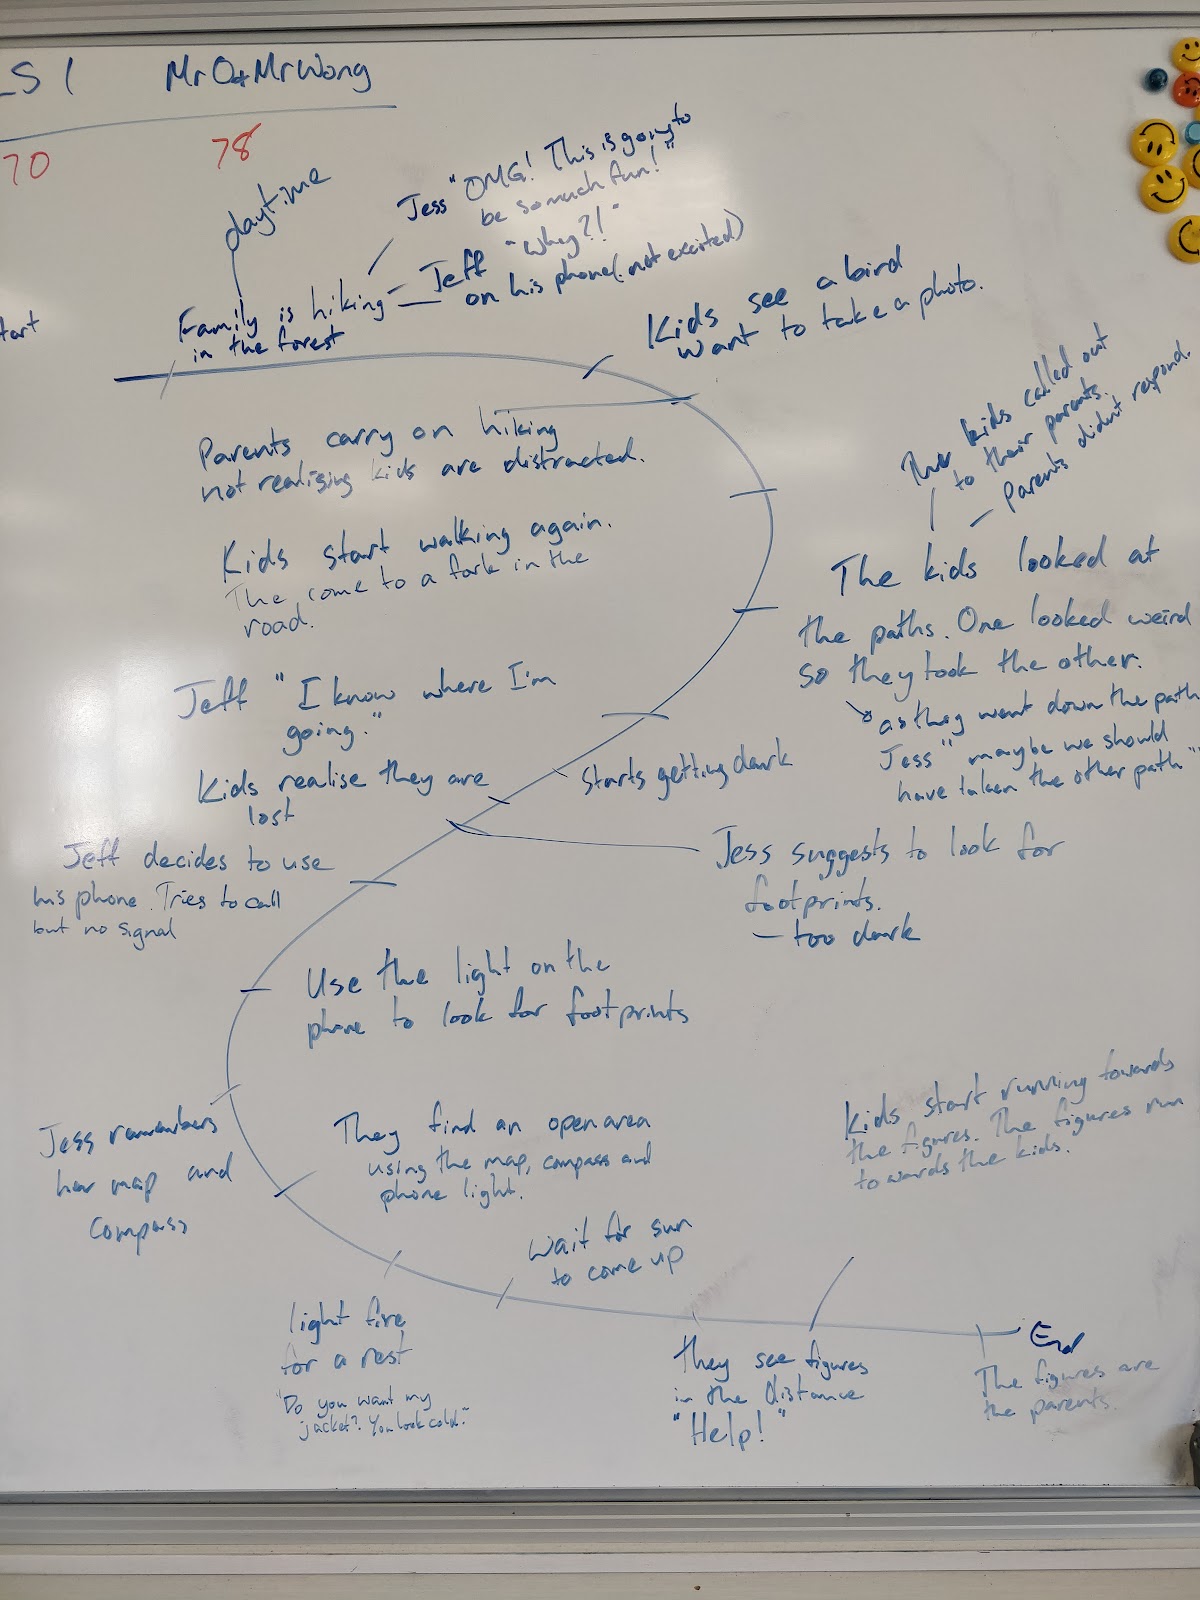 LS 1 Mr O + Mr Wong
70 78
daytime
Jess "OMG! This is going to
be so much fun!"
Jeff "Why?!"
on his phone (not excited)
tart
Family is hiking
in the forest
Kids see a bird
want to take a photo.
Parents carry on hiking
not realising kids are distracted.
Kids start walking again.
The come to a fork in the
road.
The kids called out
to their parents.
Parents didn't respond.
The kids looked at
the paths. One looked weird
so they took the other.
as they went down the path
Jess "maybe we should
have taken the other path"
Jeff "I know where I'm
going."
Starts getting dark
Kids realise they are
lost
Jess suggests to look for
footprints.
- too dark
Jeff decides to use
his phone. Tries to call
but no signal
Use the light on the
phone to look for footprints
Jess remembers
her map and
compass
They find an open area
using the map, compass and
phone light.
light fire
for a rest
"Do you want my
jacket? You look cold."
Wait for sun
to come up
They see figures
in the distance
"Help!"
Kids start running towards
the figures. The figures run
towards the kids.
End
The figures are
the parents.